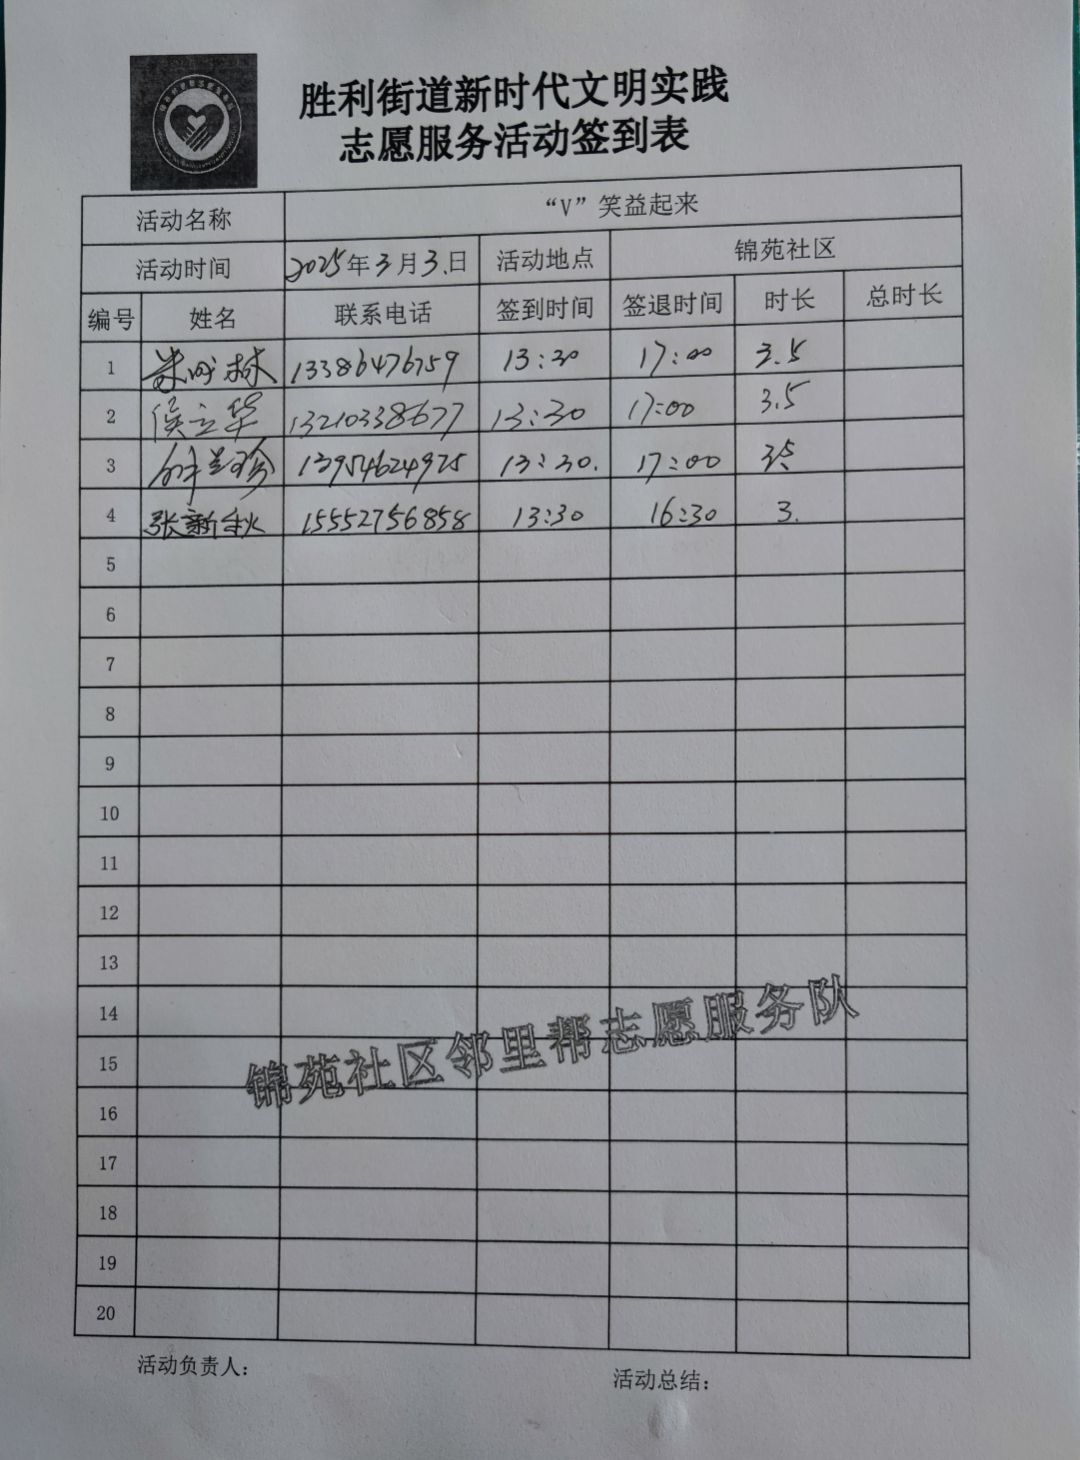 胜利街道新时代文明实践
志愿服务活动签到表
活动名称 “V”笑益起来
活动时间 2025年3月3日 活动地点 锦苑社区
编号 姓名 联系电话 签到时间 签退时间 时长 总时长
1 林 13386476759 13:30 17:00 3.5
2 侯立华 13210338677 13:30 17:00 3.5
3 13954624925 13:30. 17:00 3.5
4 张新秋 15552756858 13:30 16:30 3.
5
6
7
8
9
10
11
12
13
14
15
16
17
18
19
20
锦苑社区邻里帮志愿服务队
活动负责人: 活动总结: